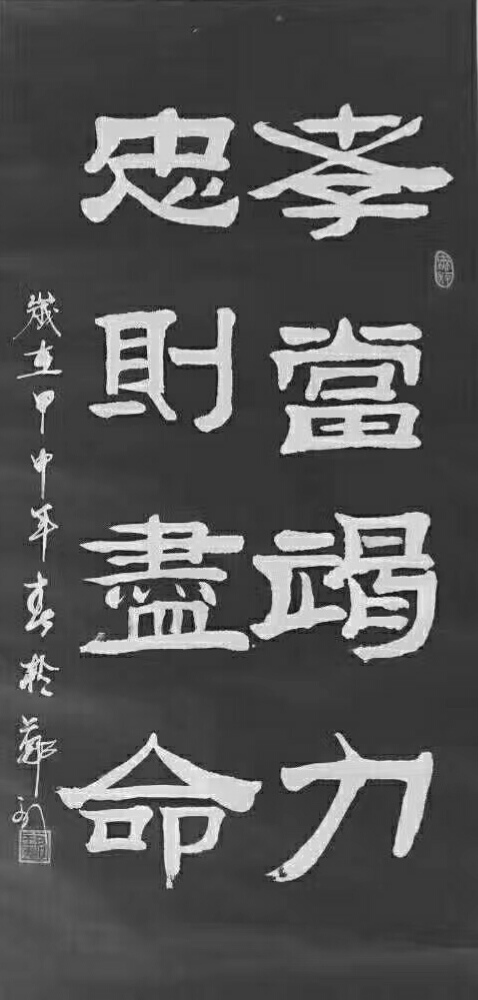 孝當竭力
忠則盡命
歲在甲申年春於鄭州